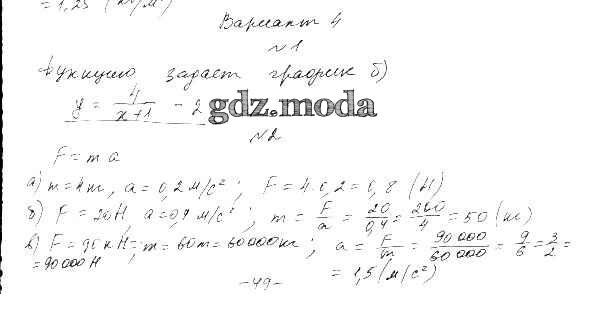 = 1,25 (кг/м³)
Вариант 4
№1
Функцию задает график б)
y = 4/(x+1) - 2
gdz.moda
№2
F = m a
а) m = 4 кг, a = 0,2 м/с²; F = 4·0,2 = 0,8 (Н)
б) F = 20 Н, a = 0,4 м/с²; m = F/a = 20/0,4 = 200/4 = 50 (кг)
в) F = 90 кН = m = 60 т = 60000 кг; a = F/m = 90 000/60 000 = 9/6 = 3/2 =
= 90 000 Н = 1,5 (м/с²)
- 49 -